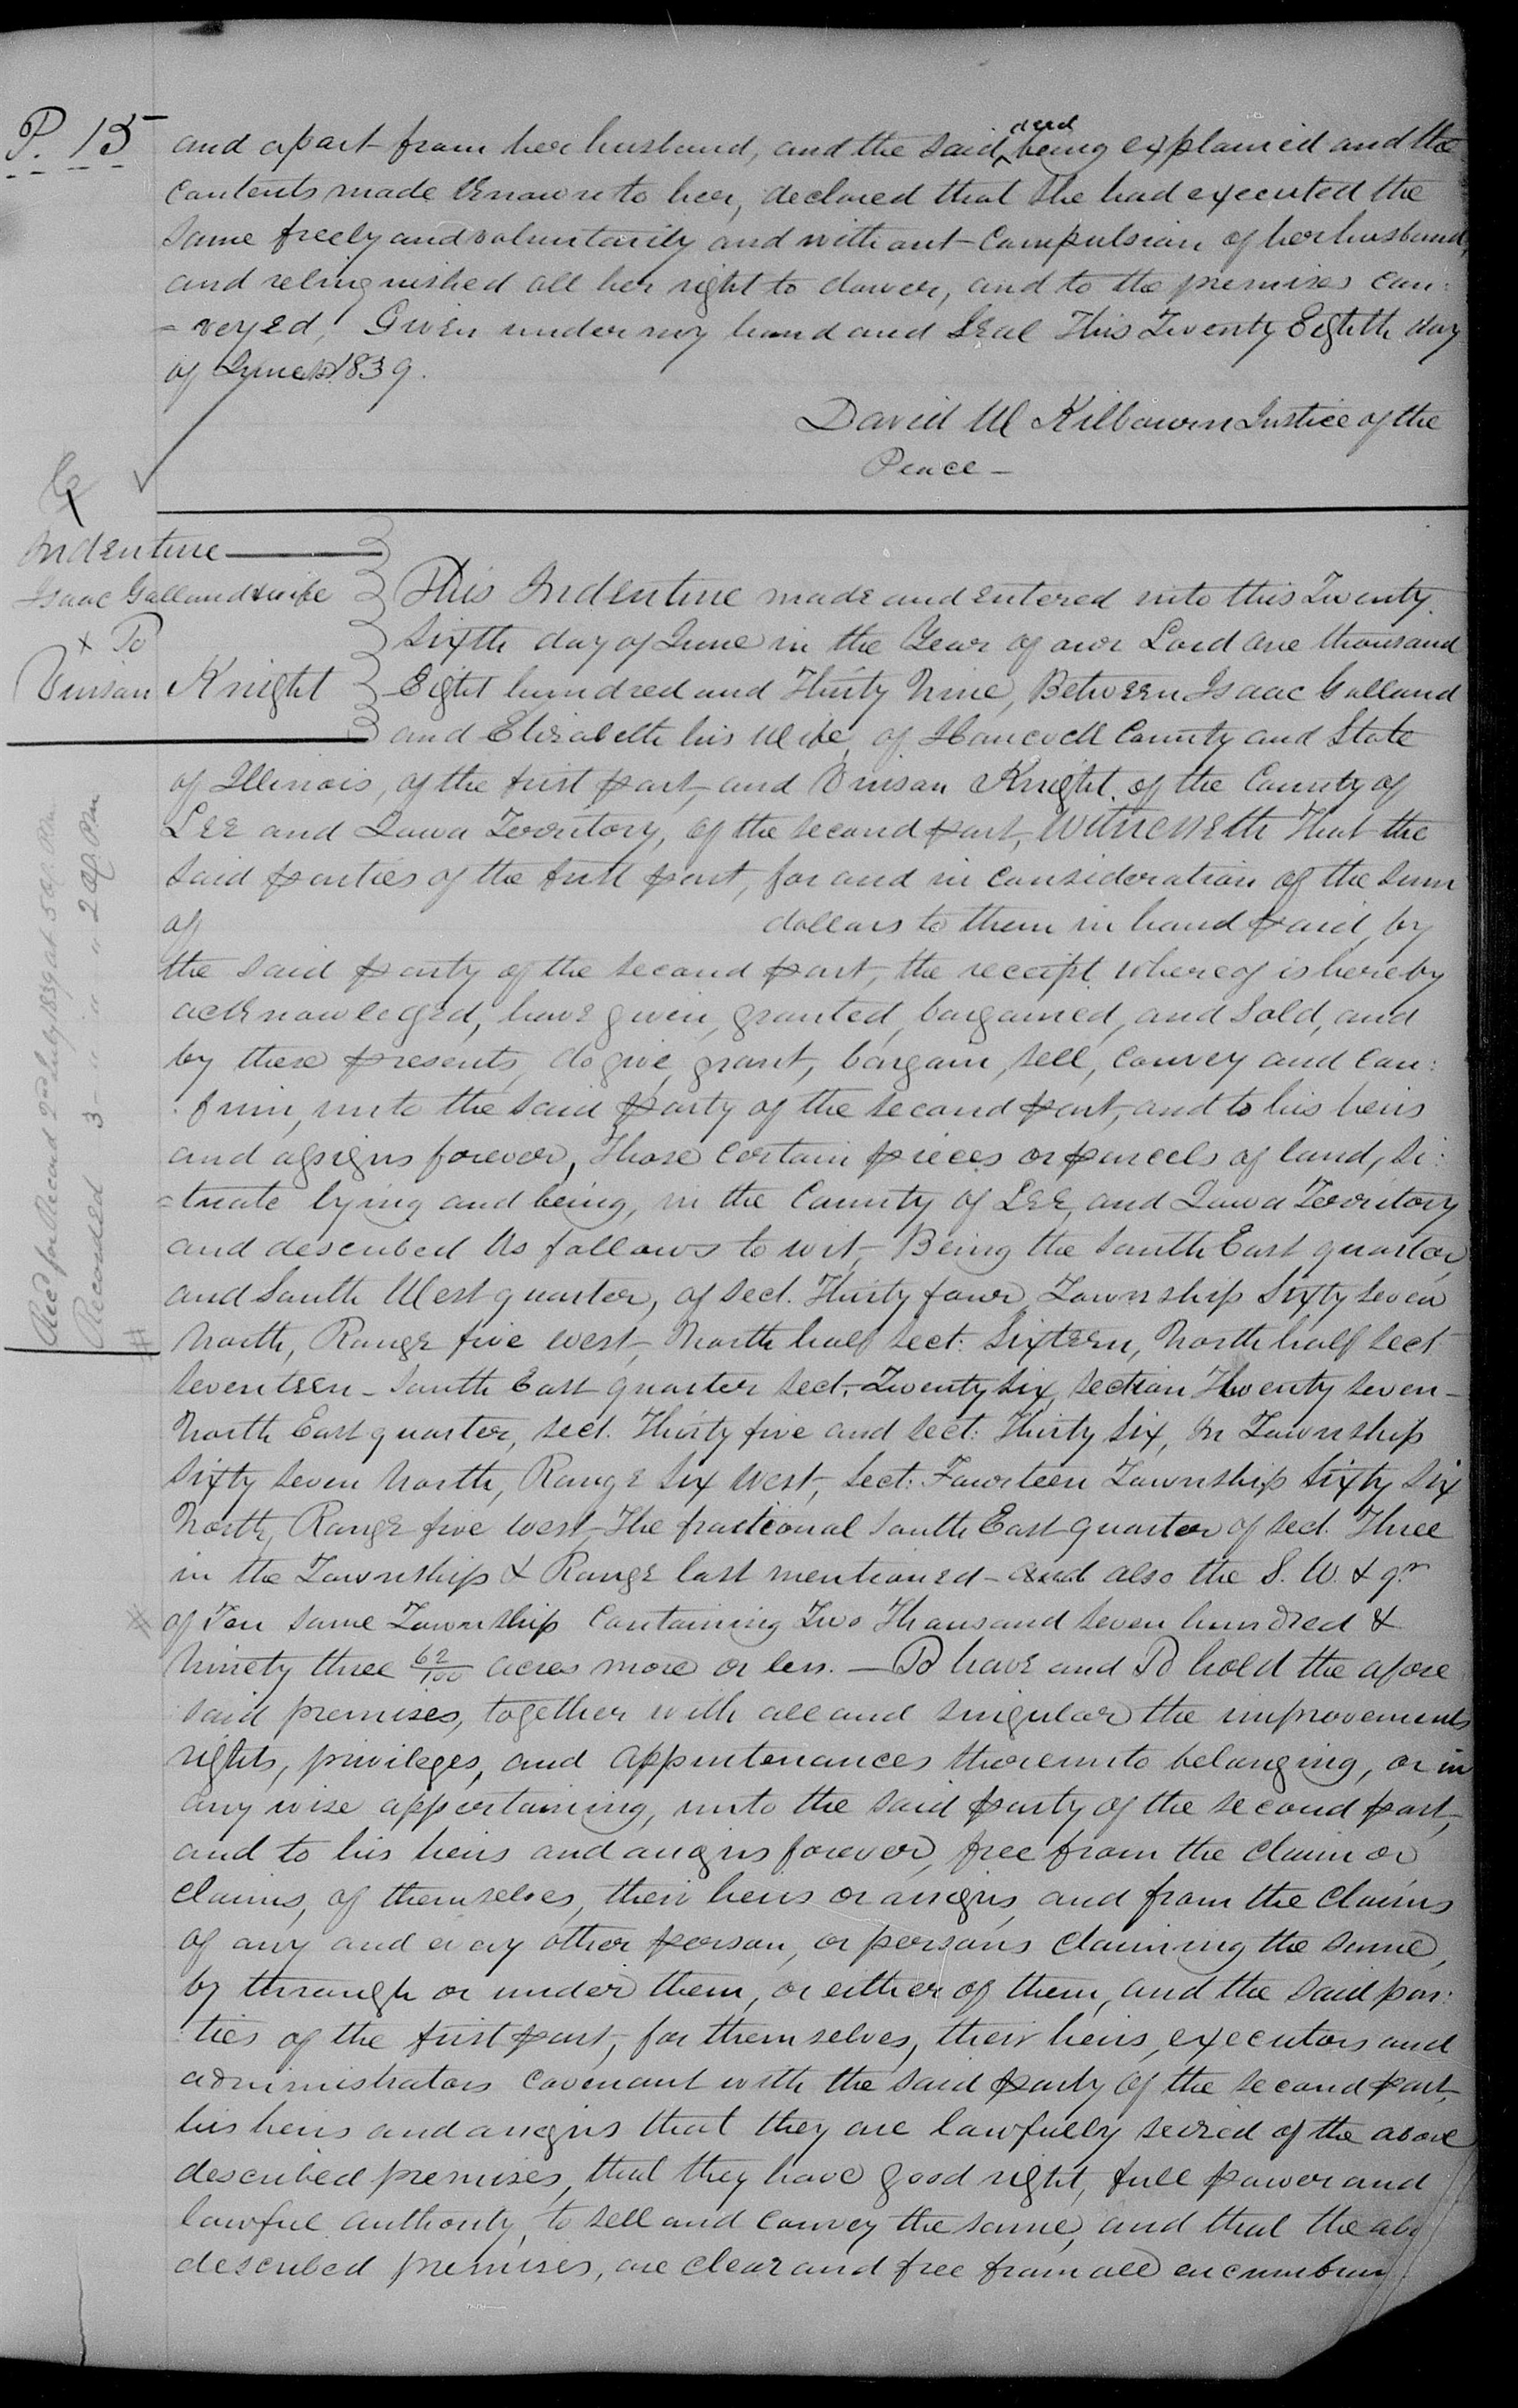 P. 15
and apart from her husband, and the said deed being explained and the
contents made known to her, declared that she had executed the
same freely and voluntarily and without compulsion of her husband,
and relinquished all her right to dower, and to the premises con:
=veyed, Given under my hand and Seal This Twenty Eighth day
of June 1839.
David W Kilbourn Justice of the
Peace –
Indenture
Isaac Galland & wife
To
Vinson Knight
This Indenture made and entered into this Twenty
Sixth day of June in the Year of our Lord one thousand
Eight hundred and Thirty Nine, Between Isaac Galland
and Elizabeth his Wife, of Hancock County and State
of Illinois, of the first part, and Vinson Knight of the County of
Lee and Iowa Territory, of the second part, Witnesseth That the
said parties of the first part, for and in consideration of the sum
of dollars to them in hand paid by
the said party of the second part, the receipt whereof is hereby
acknowledged, have given, granted, bargained, and sold, and
by these presents, do give, grant, bargain, sell, convey and con:
:firm, unto the said party of the second part, and to his heirs
and assigns forever, Those certain pieces or parcels of land, si:
=tuate lying and being, in the County of Lee and Iowa Territory
and described as follows to wit, Being the South East quarter,
and South West quarter, of sect. Thirty four Township Sixty seven
North, Range five west, North half sect: Sixteen, North half sect
seventeen – South East quarter sect. Twenty six, section Twenty seven –
North East quarter, sect. Thirty five and sect: Thirty six, in Township
sixty seven North, Range six west, sect: Fourteen Township sixty six
North, Range five west – The fractional South East quarter of sect. Three
in the Township & Range last mentioned – and also the S. W. & qr
of Ten same Township Containing Two Thousand seven hundred &
Ninety three 62/100 acres more or less. – To have and To hold the afore
said premises, together with all and singular the improvements
rights, privileges, and appurtenances thereunto belonging, or in
any wise appertaining, unto the said party of the second part,
and to his heirs and assigns forever, free from the claim or
claims, of themselves, their heirs or assigns, and from the claims
of any and every other person, or persons claiming the same,
by through or under them, or either of them, and the said par:
:ties of the first part, for themselves, their heirs, executors and
administrators covenant with the said party of the second part,
his heirs and assigns that they are lawfully seized of the above
described premises, that they have good right, full power and
lawful authority, to sell and convey the same, and that the abo
described premises, are clear and free from all encumbran
Recd for Record 2nd July 1839 at 5 O. P.m
Recorded 3 " " " 2 O. P.m